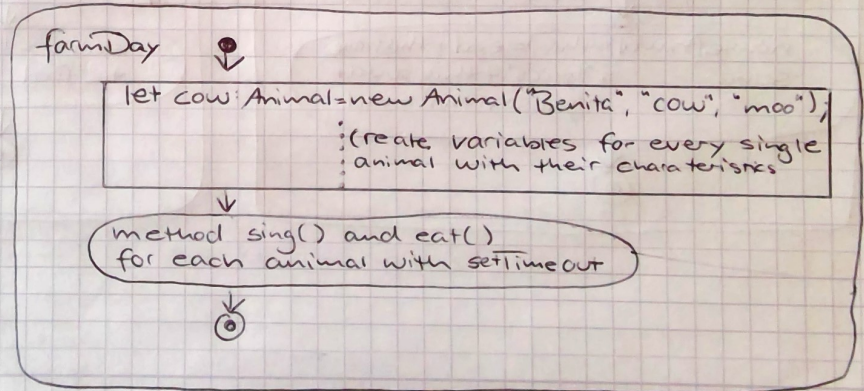 farmDay
let cow: Animal=new Animal("Benita", "cow", "moo");
create variables for every single
animal with their charateristics
method sing() and eat()
for each animal with setTimeout